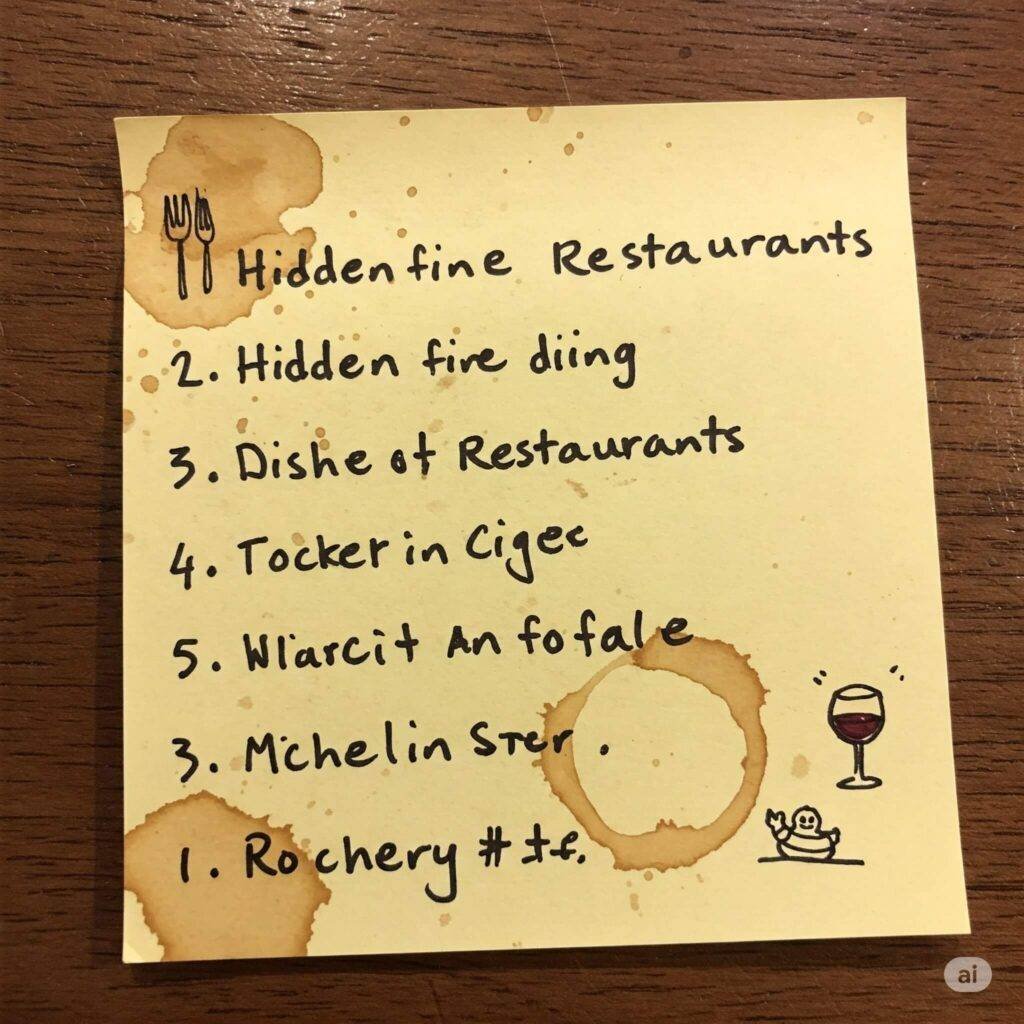 Hidden fine Restaurants
2. Hidden fire diing
3. Dishe of Restaurants
4. Tocker in Cigee
5. Wiarcit An fofale
3. Michelin Ster .
1. Rochery #
ai